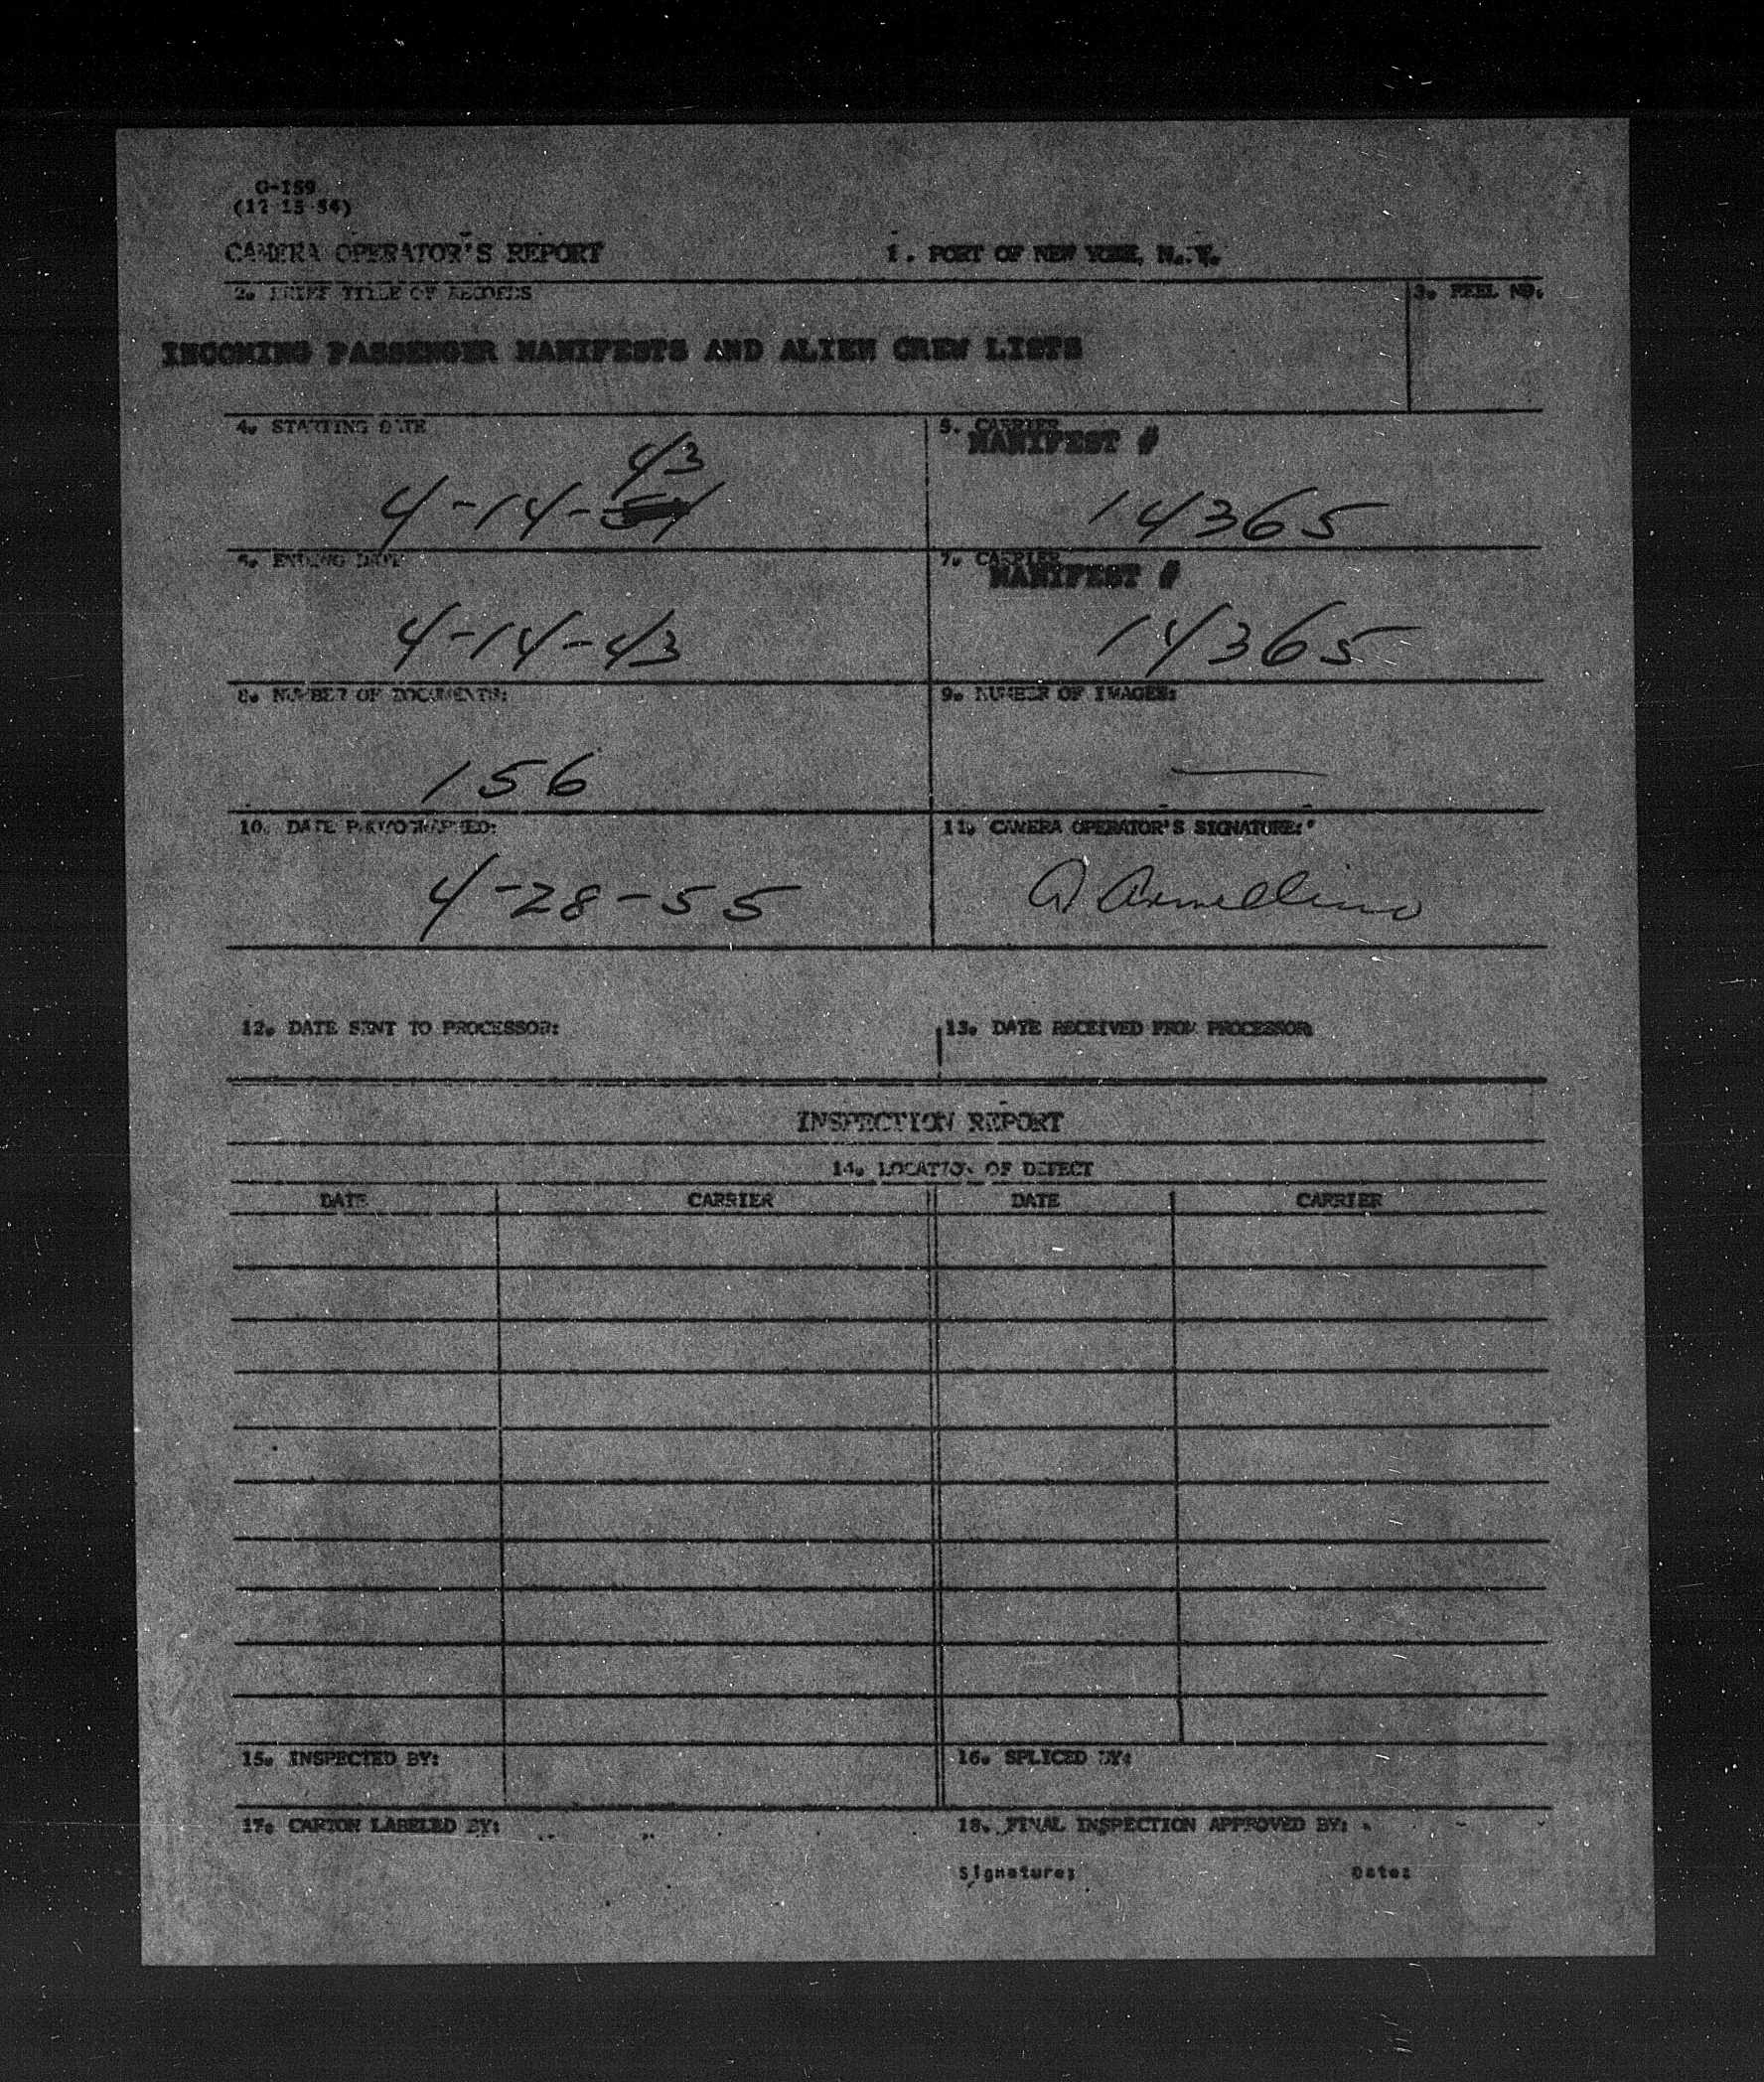 G-159
(12-15-54)
CAMERA OPERATOR'S REPORT 1. PORT OF NEW YORK, N. Y.
2. BRIEF TITLE OF RECORDS 3. REEL NO.
INCOMING PASSENGER MANIFESTS AND ALIEN CREW LISTS
4. STARTING DATE 5. CARRIER
MANIFEST #
43
4-14- 14365
6. ENDING DATE 7. CARRIER
MANIFEST #
4-14-43 14365
8. NUMBER OF DOCUMENTS: 9. NUMBER OF IMAGES:
156 —
10. DATE PHOTOGRAPHED: 11. CAMERA OPERATOR'S SIGNATURE:
4-28-55 A Armellino
12. DATE SENT TO PROCESSOR: 13. DATE RECEIVED FROM PROCESSOR
INSPECTION REPORT
14. LOCATION OF DEFECT
DATE CARRIER DATE CARRIER
15. INSPECTED BY: 16. SPLICED BY:
17. CARTON LABELED BY: 18. FINAL INSPECTION APPROVED BY:
Signature: Date: